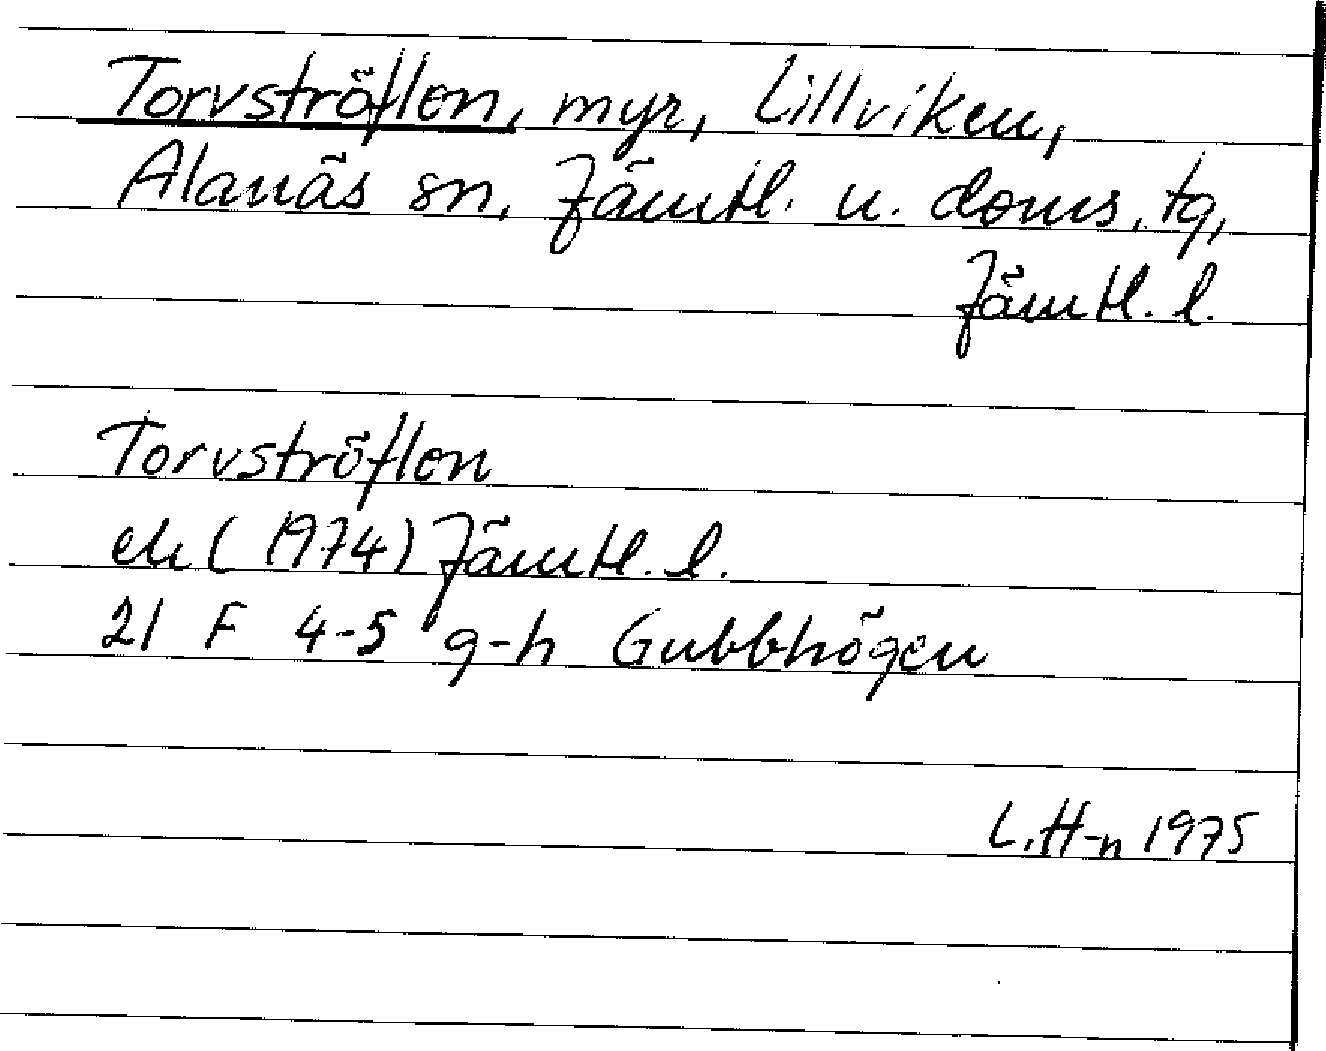 Torvströflon, myr, Lillviken,
Alanäs sn, Jämtl. n. doms. tg,
Jämtl. l.
Torvströflon
ek (1974) Jämtl. l.
21 F 4-5 g-h Gubbhögen
L. H-n 1975